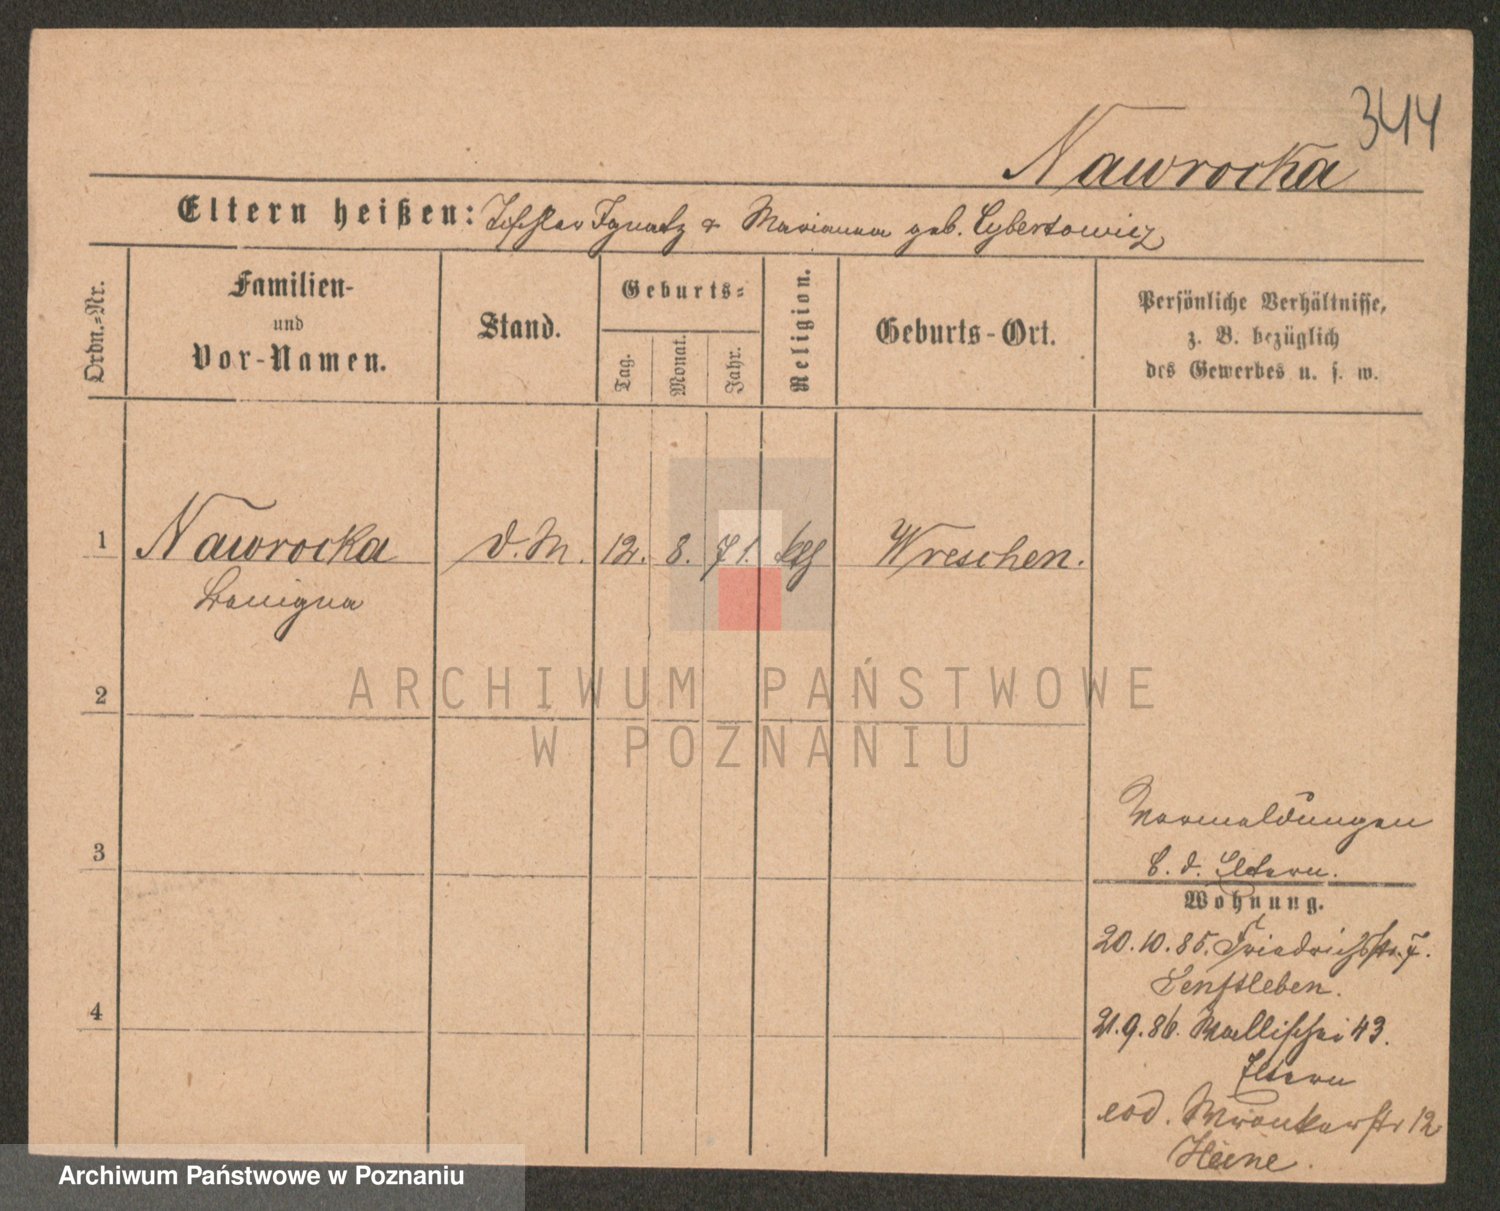 3414
Nawrocka
Eltern heißen: Tischler Ignatz & Marianna geb. Cybertowicz
Ordn.-Nr.
Familien-
und
Vor-Namen.
Stand.
Geburts-
Tag.
Monat.
Jahr.
Religion.
Geburts-Ort.
Persönliche Verhältnisse,
z. B. bezüglich
des Gewerbes u. s. w.
1 Nawrocka D.M. 12. 8. 71. kth Wreschen.
Benigna
2
3
4
Vormeldungen
b. d. Eltern.
Wohnung.
20.10.85. Friedrichsstr. 7.
Senftleben.
21.9.86. Wallischei 43.
Eltern
eod. Wronkerstr 12
Heine.
ARCHIWUM PAŃSTWOWE
W POZNANIU
Archiwum Państwowe w Poznaniu